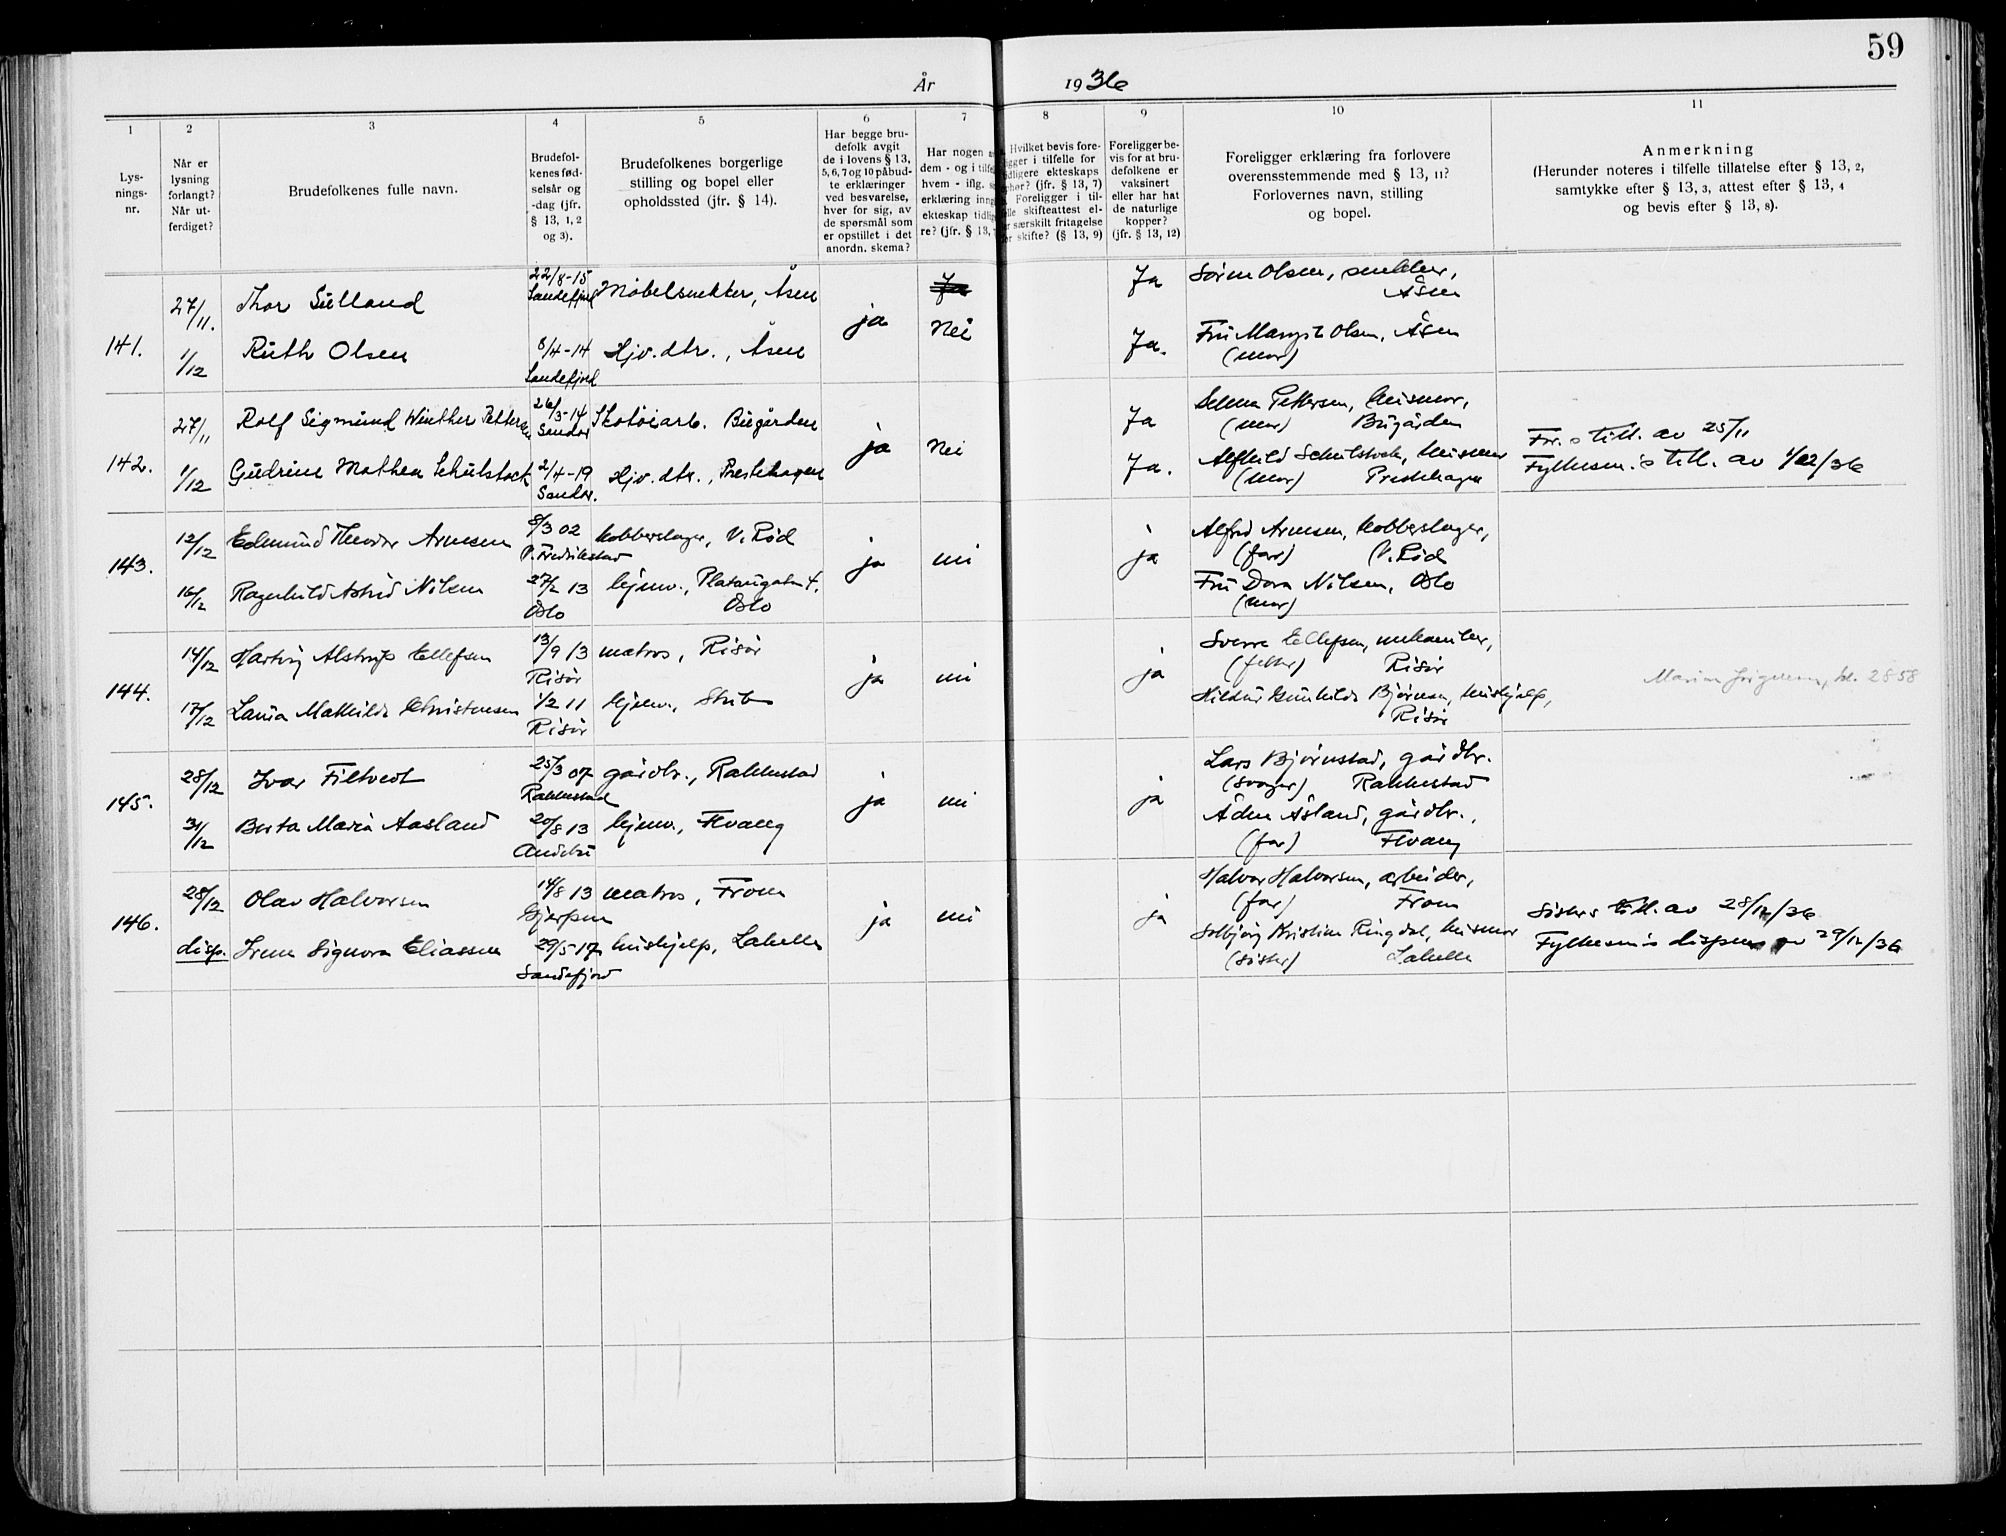 59
År 1936
1 2 3 4 5 6 7 8 9 10 11
Lys-
nings-
nr.
Når er
lysning
forlangt?
Når ut-
ferdiget?
Brudefolkenes fulle navn.
Brudefol-
kenes fød-
selsår og
-dag (jfr.
§ 13, 1, 2
og 3).
Brudefolkenes borgerlige
stilling og bopel eller
opholdssted (jfr. § 14).
Har begge bru-
defolk avgit
de i lovens § 13,
5, 6, 7 og 10 påbud-
te erklæringer
ved besvarelse,
hver for sig, av
de spørsmål som
er opstillet i det
anordn. skema?
Har nogen
dem - og i tilfe
hvem - iflg.
erklæring inng
ekteskap tidlig
re? (jfr. § 13,
Hvilket bevis fore-
gger i tilfelle for
dligere ekteskaps
phør? (jfr. § 13, 7)
Foreligger i til-
lle skifteattest el-
r særskilt fritagelse
or skifte? (§ 13, 9)
Foreligger be-
vis for at bru-
defolkene er
vaksinert
eller har hat
de naturlige
kopper?
(jfr. § 13, 12)
Foreligger erklæring fra forlovere
overensstemmende med § 13, 11?
Forlovernes navn, stilling
og bopel.
Anmerkning
(Herunder noteres i tilfelle tillatelse efter § 13, 2,
samtykke efter § 13, 3, attest efter § 13, 4
og bevis efter § 13, 8).
141.
27/11.
Thor Sulland
22/8-15
Sandefjord
Møbelsnekker, Åsen
ja
Ja
Nei
Ja
Søren Olsen, snekker,
Åsen
1/12
Ruth Olsen
8/4-14
Sandefjord
Hjv. dtr., Åsen
Ja.
Fru Margit Olsen, Åsen
(mor)
142.
27/11
Rolf Sigmund Winther Pettersen
26/3-14
Sandar
Skotøiarb. Bugården
ja
Nei
Ja
Selma Pettersen, husmor,
(mor) Bugården
For.s till. av 25/11
1/12
Gudrun Mathea Schulstock
2/4-19
Sandar.
Hjv. dtr., Prestehagen
Ja.
Alfhild Schulstock, husmor
(mor) Prestehagen
Fylkesm.'s till. av 1/12/36
143.
12/12
Edmund Theodor Arnesen
8/3 02
V. Fredrikstad
kobberslager, V. Rød
ja
nei
ja
Alfred Arnesen, kobberslager,
(far) V. Rød
16/12
Ragnhild Astrid Nilsen
27/2 13
Oslo
hjemv., Platougaten 4,
Oslo
Fru Dora Nilsen, Oslo
(mor)
144.
14/12
Hartvig Alstrup Ellefsen
13/9 13
Risør
matros, Risør
ja
nei
ja
Sverre Ellefsen, mekaniker,
(fetter) Risør
17/12
Laura Mathilde Christensen
1/2 11
Risør
hjemv., Stub
Hildur Gunhilde Bjørnsen, hushjelp,
Risør
2858
145.
28/12
Ivar Filtvedt
25/3 07
Rakkestad
gårdbr., Rakkestad
ja
nei
ja
Lars Bjørnstad, gårdbr.
(svoger) Rakkestad
31/12
Berta Maria Aasland
20/8 13
Andebu
hjemv., Hvang
Åsland, gårdbr.,
(far)
146.
28/12
Olav Halvorsen
14/8 13
Gjerpen
matros, Fron
ja
nei
ja
Halvor Halvorsen, arbeider,
(far) Fron
Søsters till. av 28/12/36
disp.
Irene Signora Eliassen
29/5-17
Sandefjord
hushjelp, Lahelle
Solbjørg Kristine Ringdal, husmor
(søster) Lahelle
Fylkesm's dispens av 29/12/36